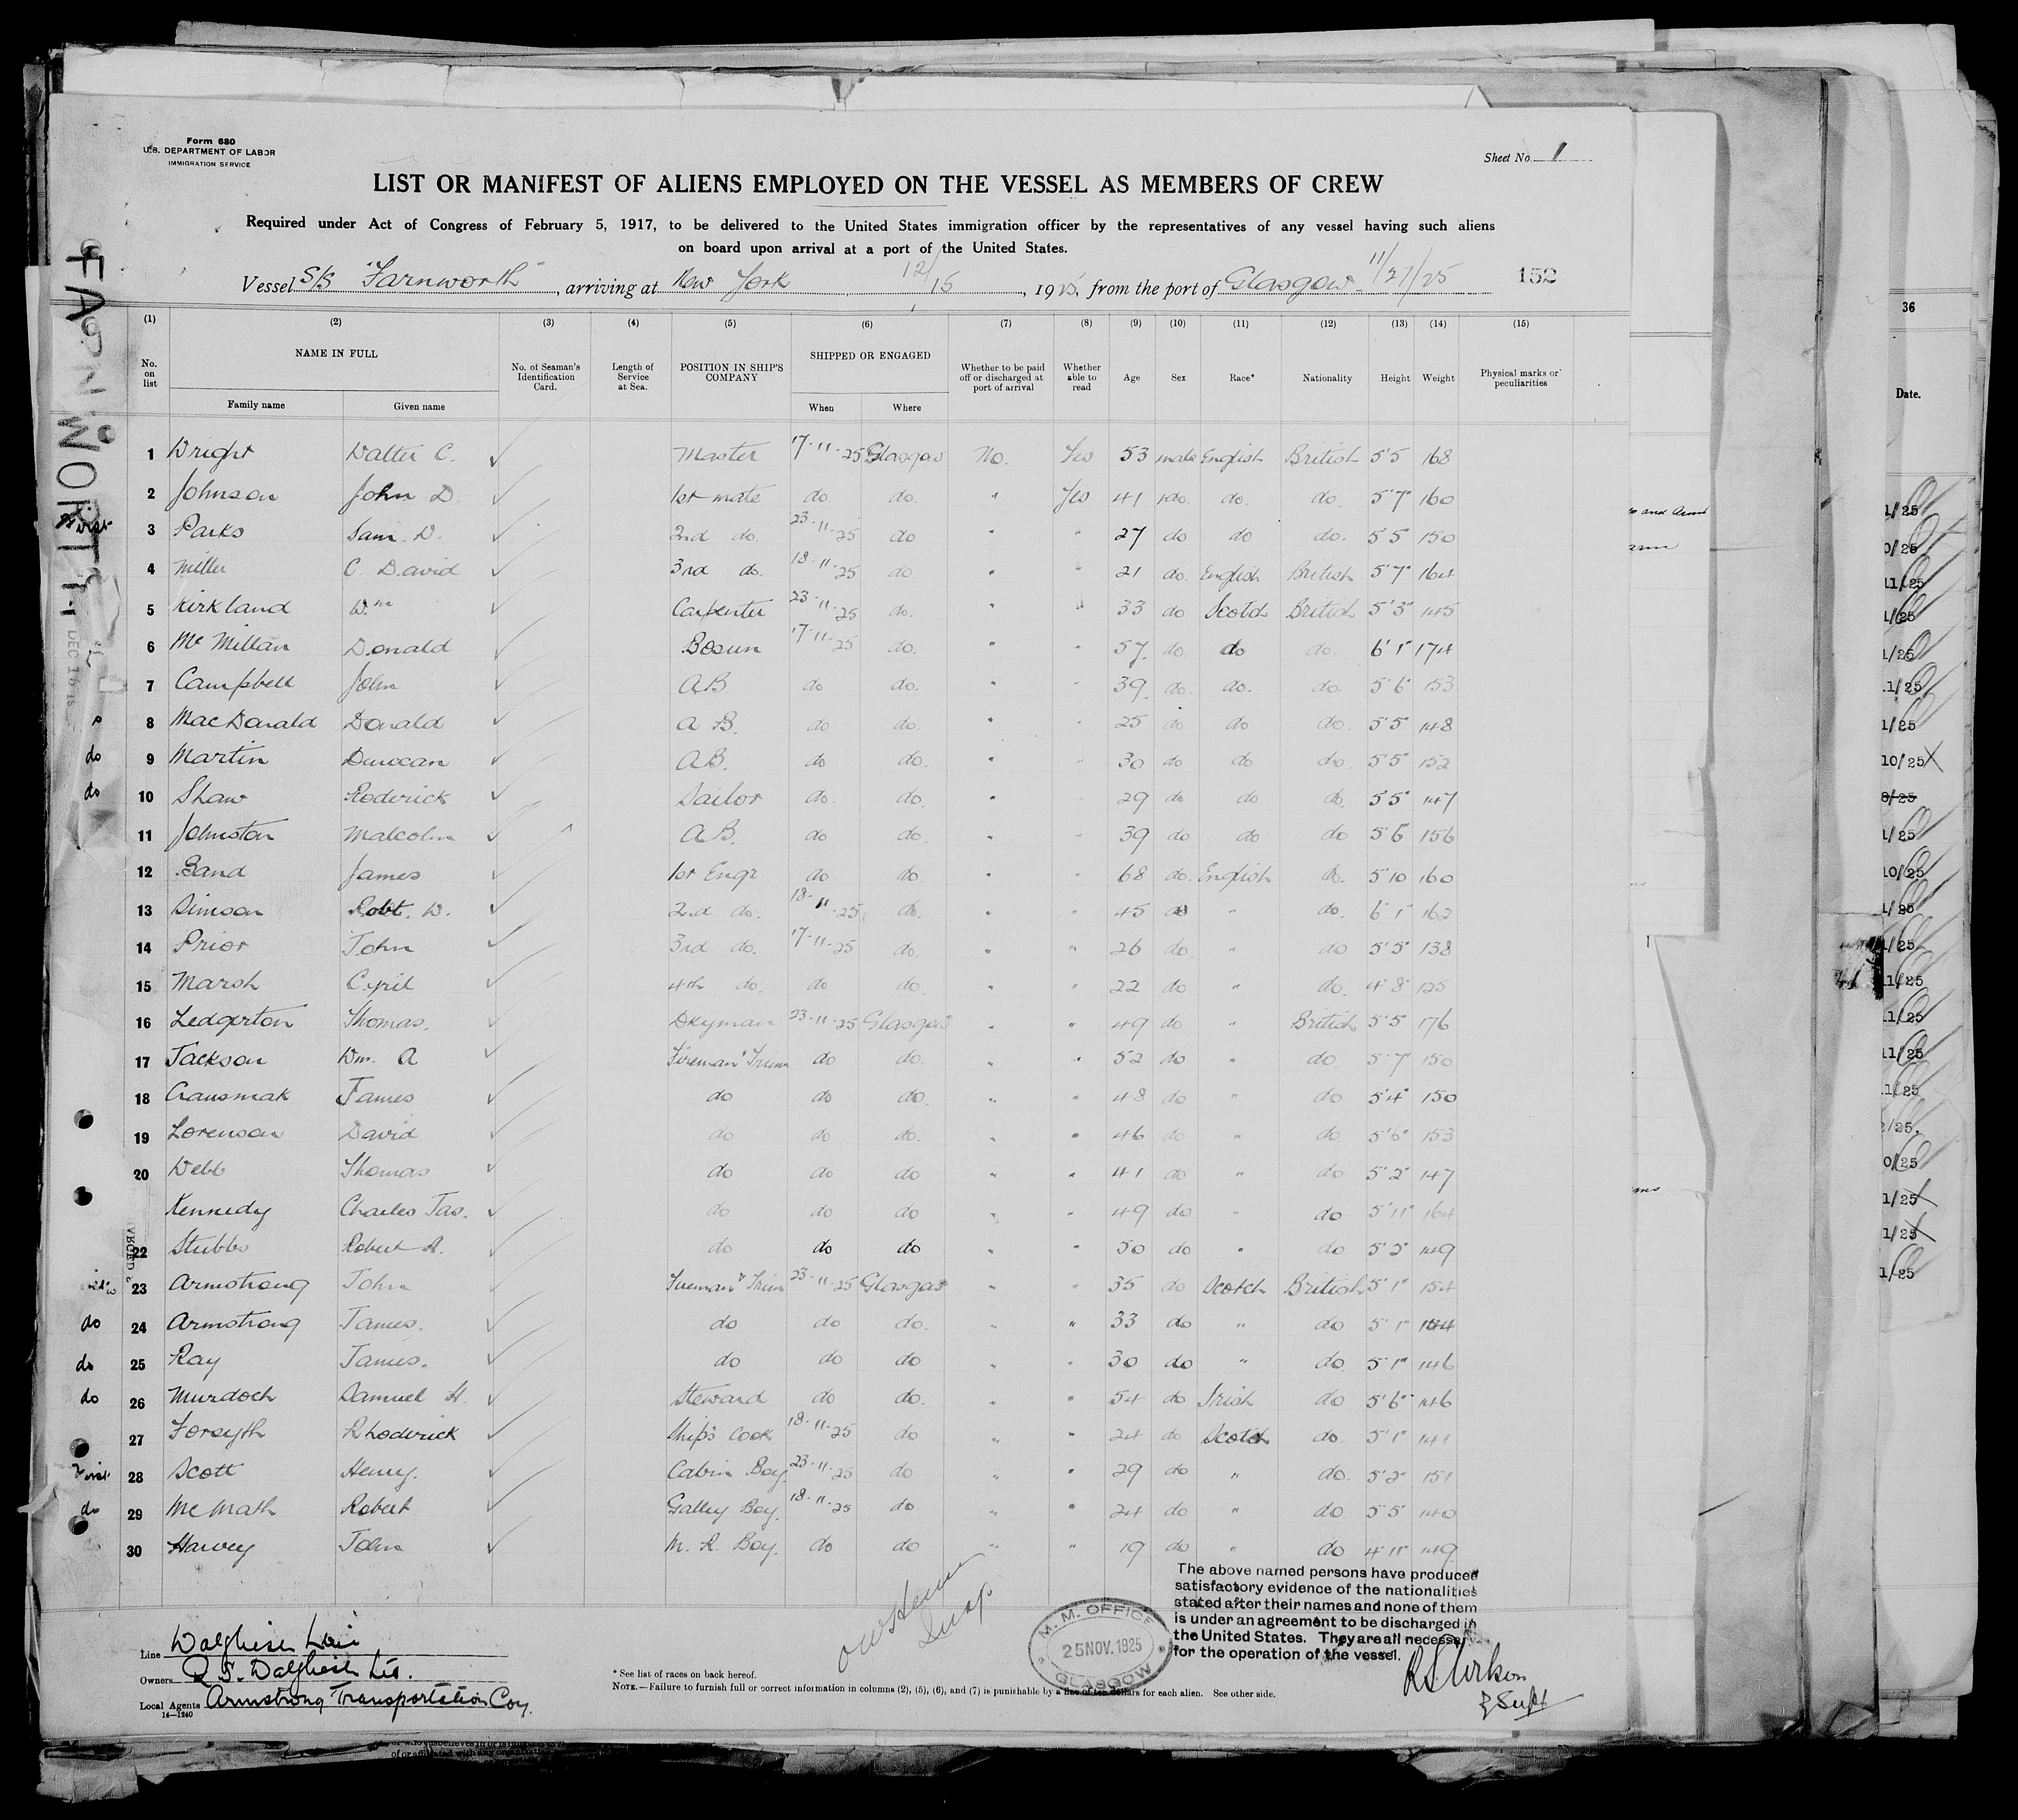 Form 680
U.S. DEPARTMENT OF LABOR
IMMIGRATION SERVICE
Sheet No. 1
LIST OR MANIFEST OF ALIENS EMPLOYED ON THE VESSEL AS MEMBERS OF CREW
Required under Act of Congress of February 5, 1917, to be delivered to the United States immigration officer by the representatives of any vessel having such aliens
on board upon arrival at a port of the United States.
Vessel S/S "Farnworth", arriving at New York 12/15, 1925, from the port of Glasgow 11/27/25 152
FARNWORTH
(1) (2) (3) (4) (5) (6) (7) (8) (9) (10) (11) (12) (13) (14) (15)
No. on list NAME IN FULL No. of Seaman's Identification Card. Length of Service at Sea. POSITION IN SHIP'S COMPANY SHIPPED OR ENGAGED Whether to be paid off or discharged at port of arrival Whether able to read Age Sex Race* Nationality Height Weight Physical marks or peculiarities
Family name Given name When Where
1 Wright Walter C. Master 17-11-25 Glasgow No. Yes 53 male English British 5'5 168
2 Johnson John D. 1st mate do do. " Yes 41 do. do. do. 5'7" 160
3 Parks Sam. W. 2nd do. 23-11-25 do " " 27 do do do. 5'5 150
4 Miller C. David 3rd do. 18-11-25 do. " " 21 do. English British 5'7" 164
5 Kirkland Wm Carpenter 23-11-25 do. " " 33 do Scotch British 5'3" 145
6 McMillan Donald Bosun 17-11-25 do. " " 57 do. do do. 6'1" 174
7 Campbell John A.B. do do. " " 39 do. do. do. 5'6" 153
8 MacDonald Donald A B. do do. " " 25 do do do. 5'5" 148
do 9 Martin Duncan A.B. do do. " " 30 do do do. 5'5" 152
do 10 Shaw Roderick Sailor do. do. " " 29 do do do. 5'5" 147
11 Johnston Malcolm A.B. do do. " " 39 do do do 5'6 156
12 Band James 1st Engr do do " " 68 do. English do. 5'10 160
13 Simson Robt. W. 2nd do. 18-11-25 do. " " 45 do " do. 6'1" 162
14 Prior John 3rd do. 17-11-25 do. " " 26 do. " do 5'5" 138
15 Marsh Cyril 4th do. do do. " " 22 do " do. 4'8" 125
16 Ledgerton Thomas. Dkyman 23-11-25 Glasgow " " 49 do " British 5'5 176
17 Jackson Wm. A Fireman & Trim do do. " " 52 do " do 5'7" 150
18 James do do do. " " 48 do " do 5'4" 150
19 Lorenson David do do do. " " 46 do " do 5'6" 153
20 Webb Thomas do do do " " 41 do " do 5'2" 147
Kennedy Charles Jas. do do do " " 49 do " do 5'11" 164
22 Stubbs Robert A. do do do " " 50 do " do 5'2" 149
23 Armstrong John Fireman & Trim 23-11-25 Glasgow " " 35 do Scotch British 5'1" 154
do 24 Armstrong James. do do do. " " 33 do " do 5'1"
do 25 Ray James. do do do " " 30 do " do 5'1" 146
do 26 Murdoch Samuel H. Steward do do. " " 54 do Irish do 5'6" 146
27 Forsyth Rhoderick Ship's Cook 18-11-25 do " " 24 do Scotch do. 5'1" 141
First 28 Scott Henry. Cabin Boy. 23-11-25 do " " 29 do " do. 5'2" 151
do 29 McMath Robert Galley Boy. 18-11-25 do " " 24 do " do 5'5 140
30 Harvey John M. R. Boy. do do " " 19 do " do 4'11" 149
The above named persons have produced
satisfactory evidence of the nationalities
stated after their names and none of them
is under an agreement to be discharged in
the United States. They are all necessary
for the operation of the vessel.
M. M. OFFICE
25 NOV. 1925
GLASGOW
Insp
Line Dalgliesh Line
Owners R. S. Dalgliesh Ltd.
Local Agents Armstrong Transportation Coy.
14—1240
* See list of races on back hereof.
NOTE.—Failure to furnish full or correct information in columns (2), (5), (6), and (7) is punishable by a fine of ten dollars for each alien. See other side.
36
Date.